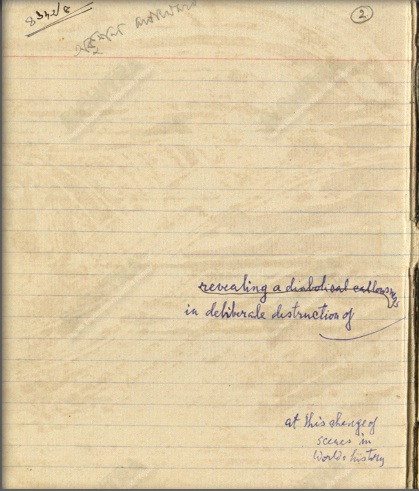 2
revealing a diabolical callousness
in deliberate destruction of
at this change of
scenes in
World's history